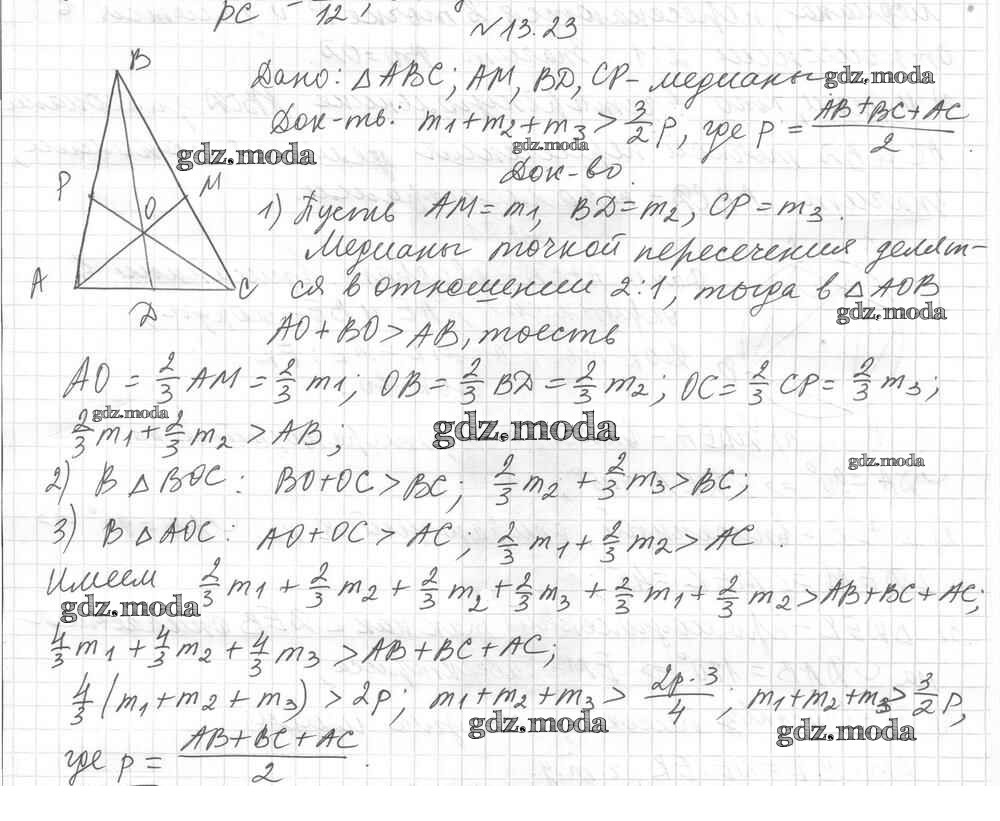 PC = 12,
N 13.23
Дано: △ABC; AM, BD, CP - медианы
gdz.moda
Док-ть: m1+m2+m3 > 3/2 p, где p = (AB+BC+AC)/2.
gdz.moda
gdz.moda
Док-во.
B
P
M
O
A
C
D
1) Пусть AM=m1, BD=m2, CP=m3.
Медианы точкой пересечения делят-
ся в отношении 2:1, тогда в △AOB
gdz.moda
AO+BO>AB, тоесть
AO = 2/3 AM = 2/3 m1; OB = 2/3 BD = 2/3 m2; OC = 2/3 CP = 2/3 m3;
gdz.moda
2/3 m1 + 2/3 m2 > AB;
gdz.moda
gdz.moda
2) В △BOC: BO+OC>BC; 2/3 m2 + 2/3 m3 > BC;
3) В △AOC: AO+OC > AC; 2/3 m1 + 2/3 m2 > AC.
Имеем 2/3 m1 + 2/3 m2 + 2/3 m2 + 2/3 m3 + 2/3 m1 + 2/3 m2 > AB+BC+AC;
gdz.moda
4/3 m1 + 4/3 m2 + 4/3 m3 > AB+BC+AC;
4/3 (m1+m2+m3) > 2p; m1+m2+m3 > 2p·3/4; m1+m2+m3 > 3/2 p,
gdz.moda
gdz.moda
где p = (AB+BC+AC)/2.